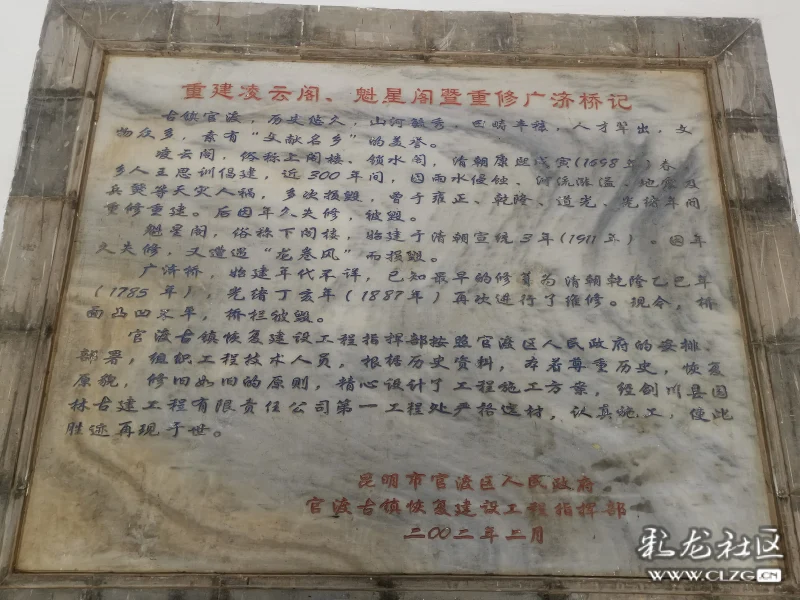 重建凌云阁、魁星阁暨重修广济桥记
古镇官渡，历史悠久，山河毓秀，田畴丰穰，人才辈出，文
物众多，素有“文献名乡”的美誉。
凌云阁，俗称上阁楼、锁水阁，清朝康熙戊寅（1698年）春
乡人王思训倡建，近300年间，因雨水侵蚀、河流泛滥、地震及
兵燹等天灾人祸，多次损毁，曾于雍正、乾隆、道光、光绪年间
重修重建。后因年久失修，被毁。
魁星阁，俗称下阁楼，始建于清朝宣统3年（1911年）。因年
久失修，又遭遇“龙卷风”而损毁。
广济桥，始建年代不详，已知最早的修葺为清朝乾隆乙巳年
（1785年），光绪丁亥年（1887年）再次进行了维修。现今，桥
面凸凹不平，桥栏被毁。
官渡古镇恢复建设工程指挥部按照官渡区人民政府的安排、
部署，组织工程技术人员，根据历史资料，本着尊重历史，恢复
原貌，修旧如旧的原则，精心设计了工程施工方案，经剑川县园
林古建工程有限责任公司第一工程处严格选材，认真施工，使此
胜迹再现于世。
昆明市官渡区人民政府
官渡古镇恢复建设工程指挥部
二〇〇二年二月
彩龙社区
WWW.CLZG.CN